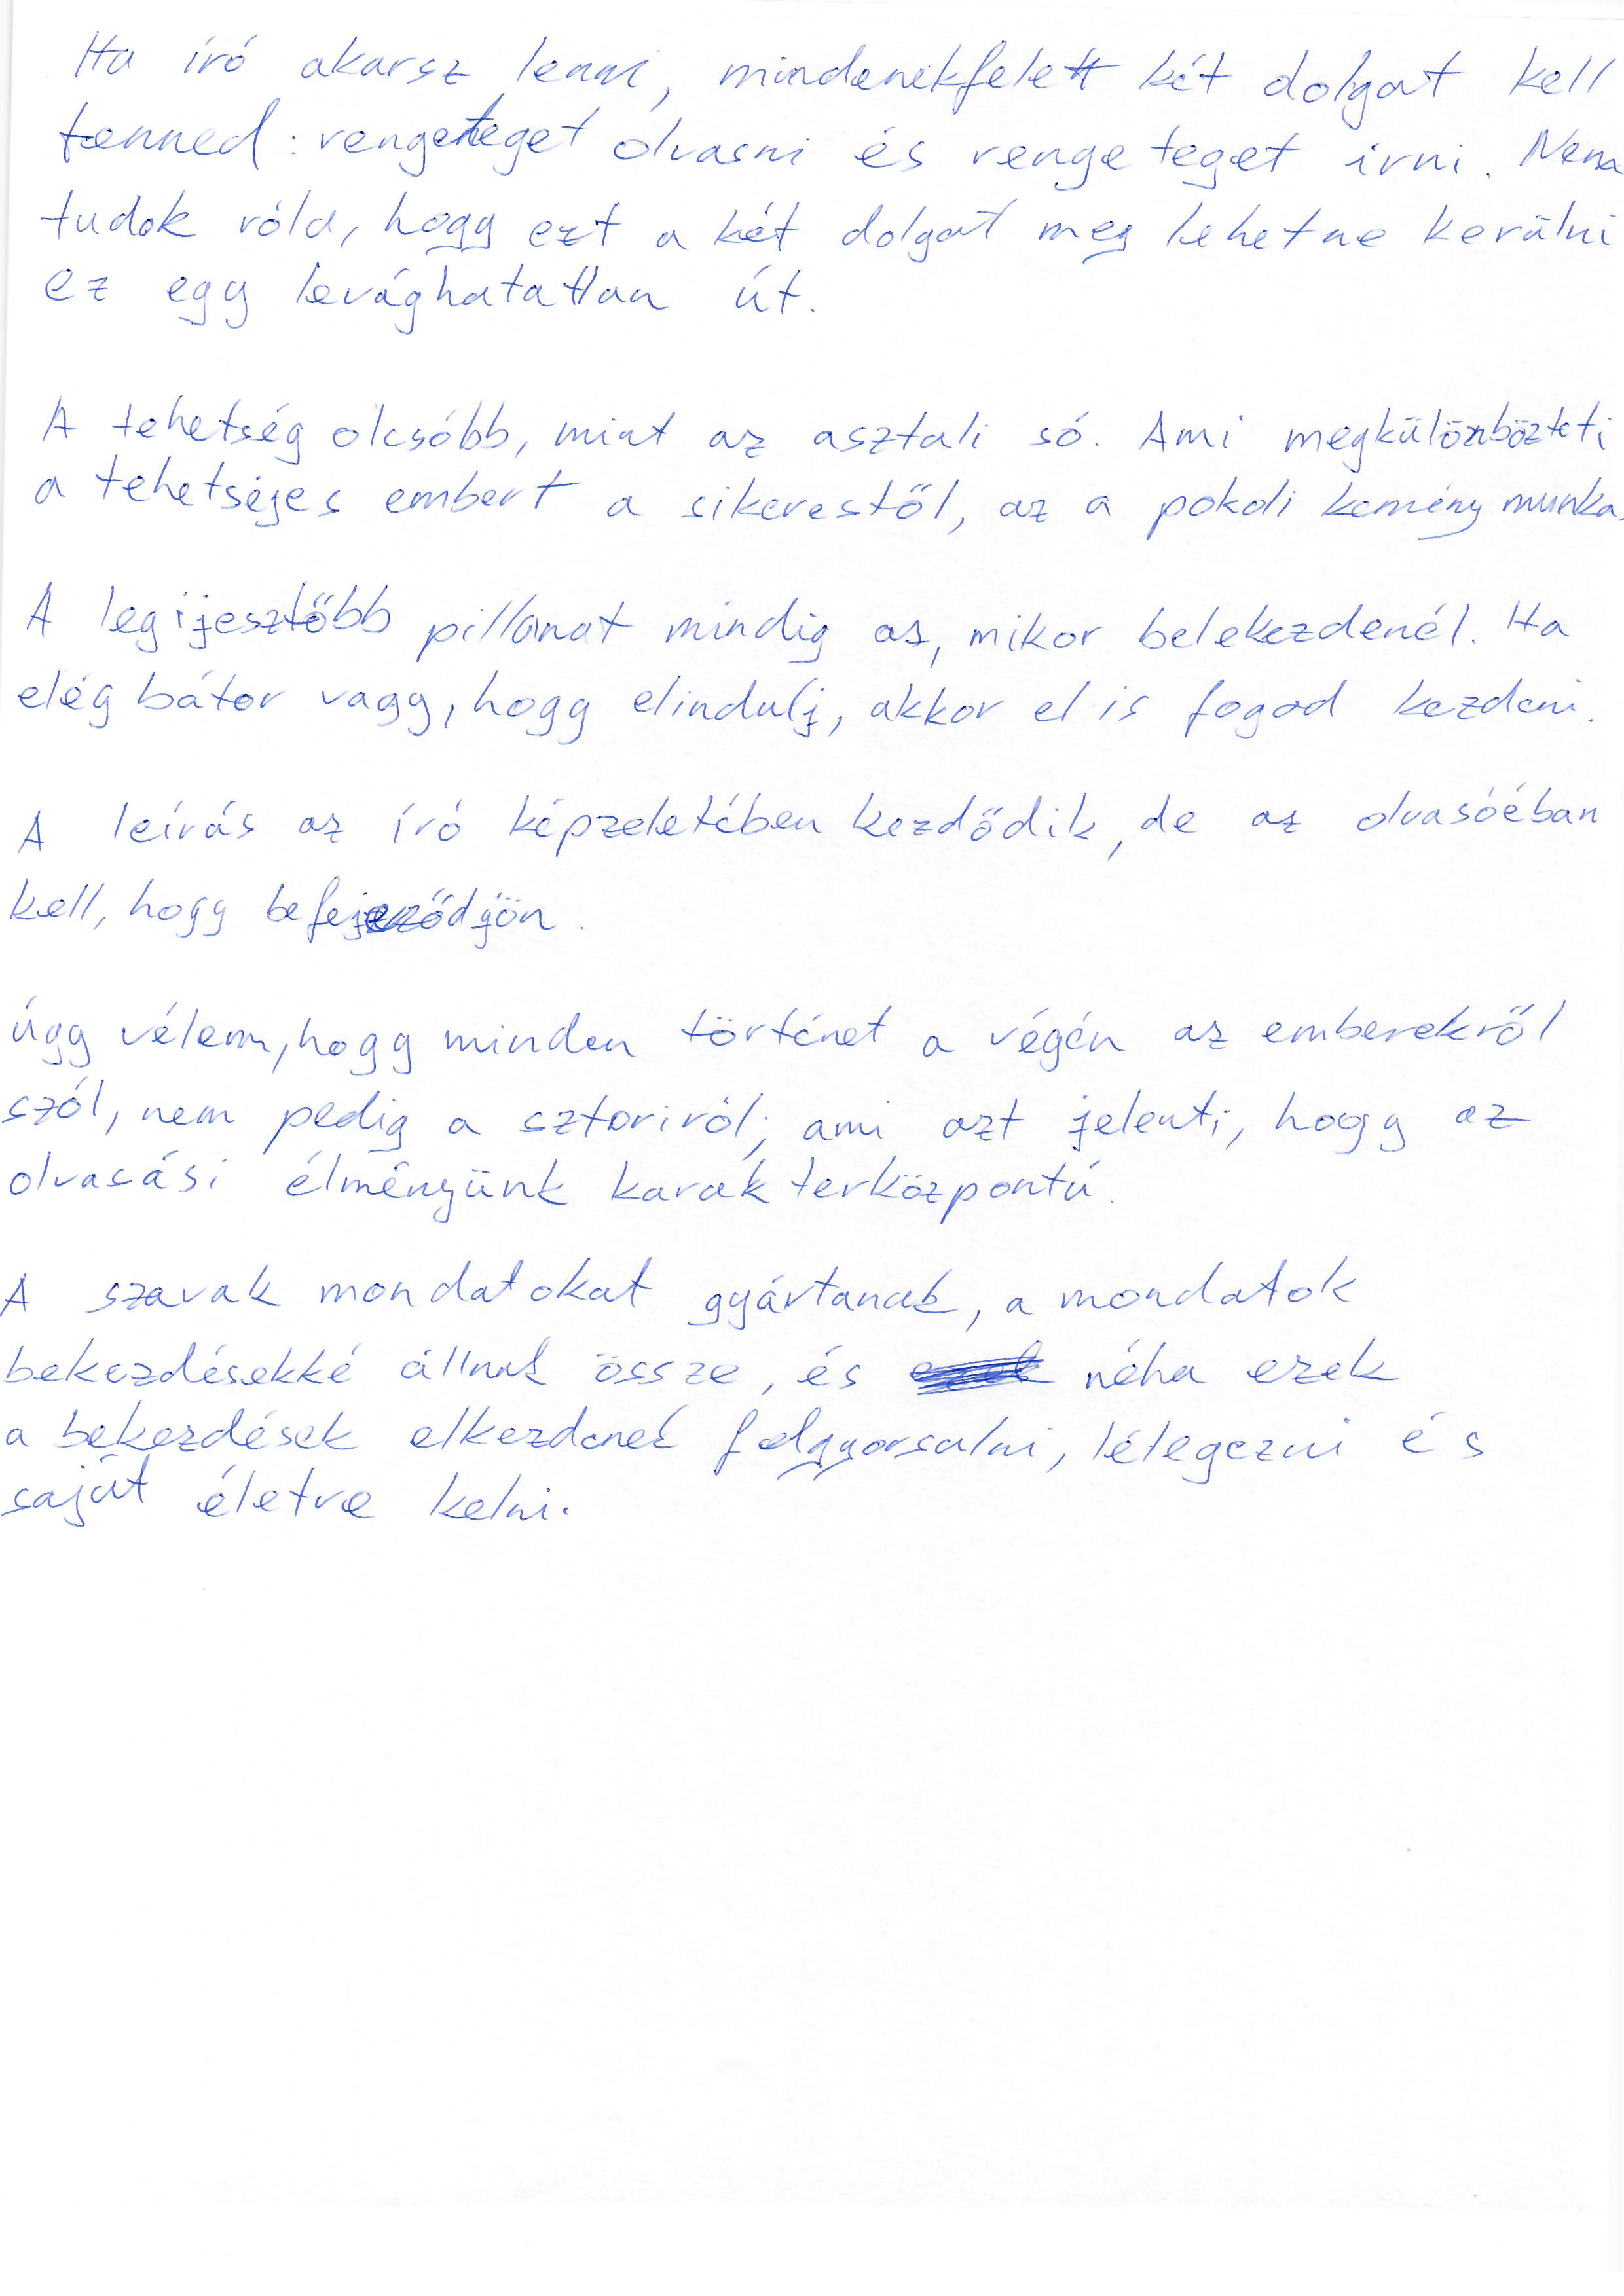 Ha író akarsz lenni, mindenekfelett két dolgot kell
tenned: rengeteget olvasni és rengeteget írni. Nem
tudok róla, hogy ezt a két dolgot meg lehetne kerülni
ez egy levághatatlan út.
A tehetség olcsóbb, mint az asztali só. Ami megkülönbözteti
a tehetséges embert a sikerestől, az a pokoli kemény munka.
A legijesztőbb pillanat mindig az, mikor belekezdenél. Ha
elég bátor vagy, hogy elindulj, akkor el is fogod kezdeni.
A leírás az író képzeletében kezdődik, de az olvasóéban
kell, hogy befejeződjön.
Úgy vélem, hogy minden történet a végén az emberekről
szól, nem pedig a sztoriról; ami azt jelenti, hogy az
olvasási élményünk karakterközpontú.
A szavak mondatokat gyártanak, a mondatok
bekezdésekké állnak össze, és néha ezek
a bekezdések elkezdenek felgyorsulni, lélegezni és
saját életre kelni.